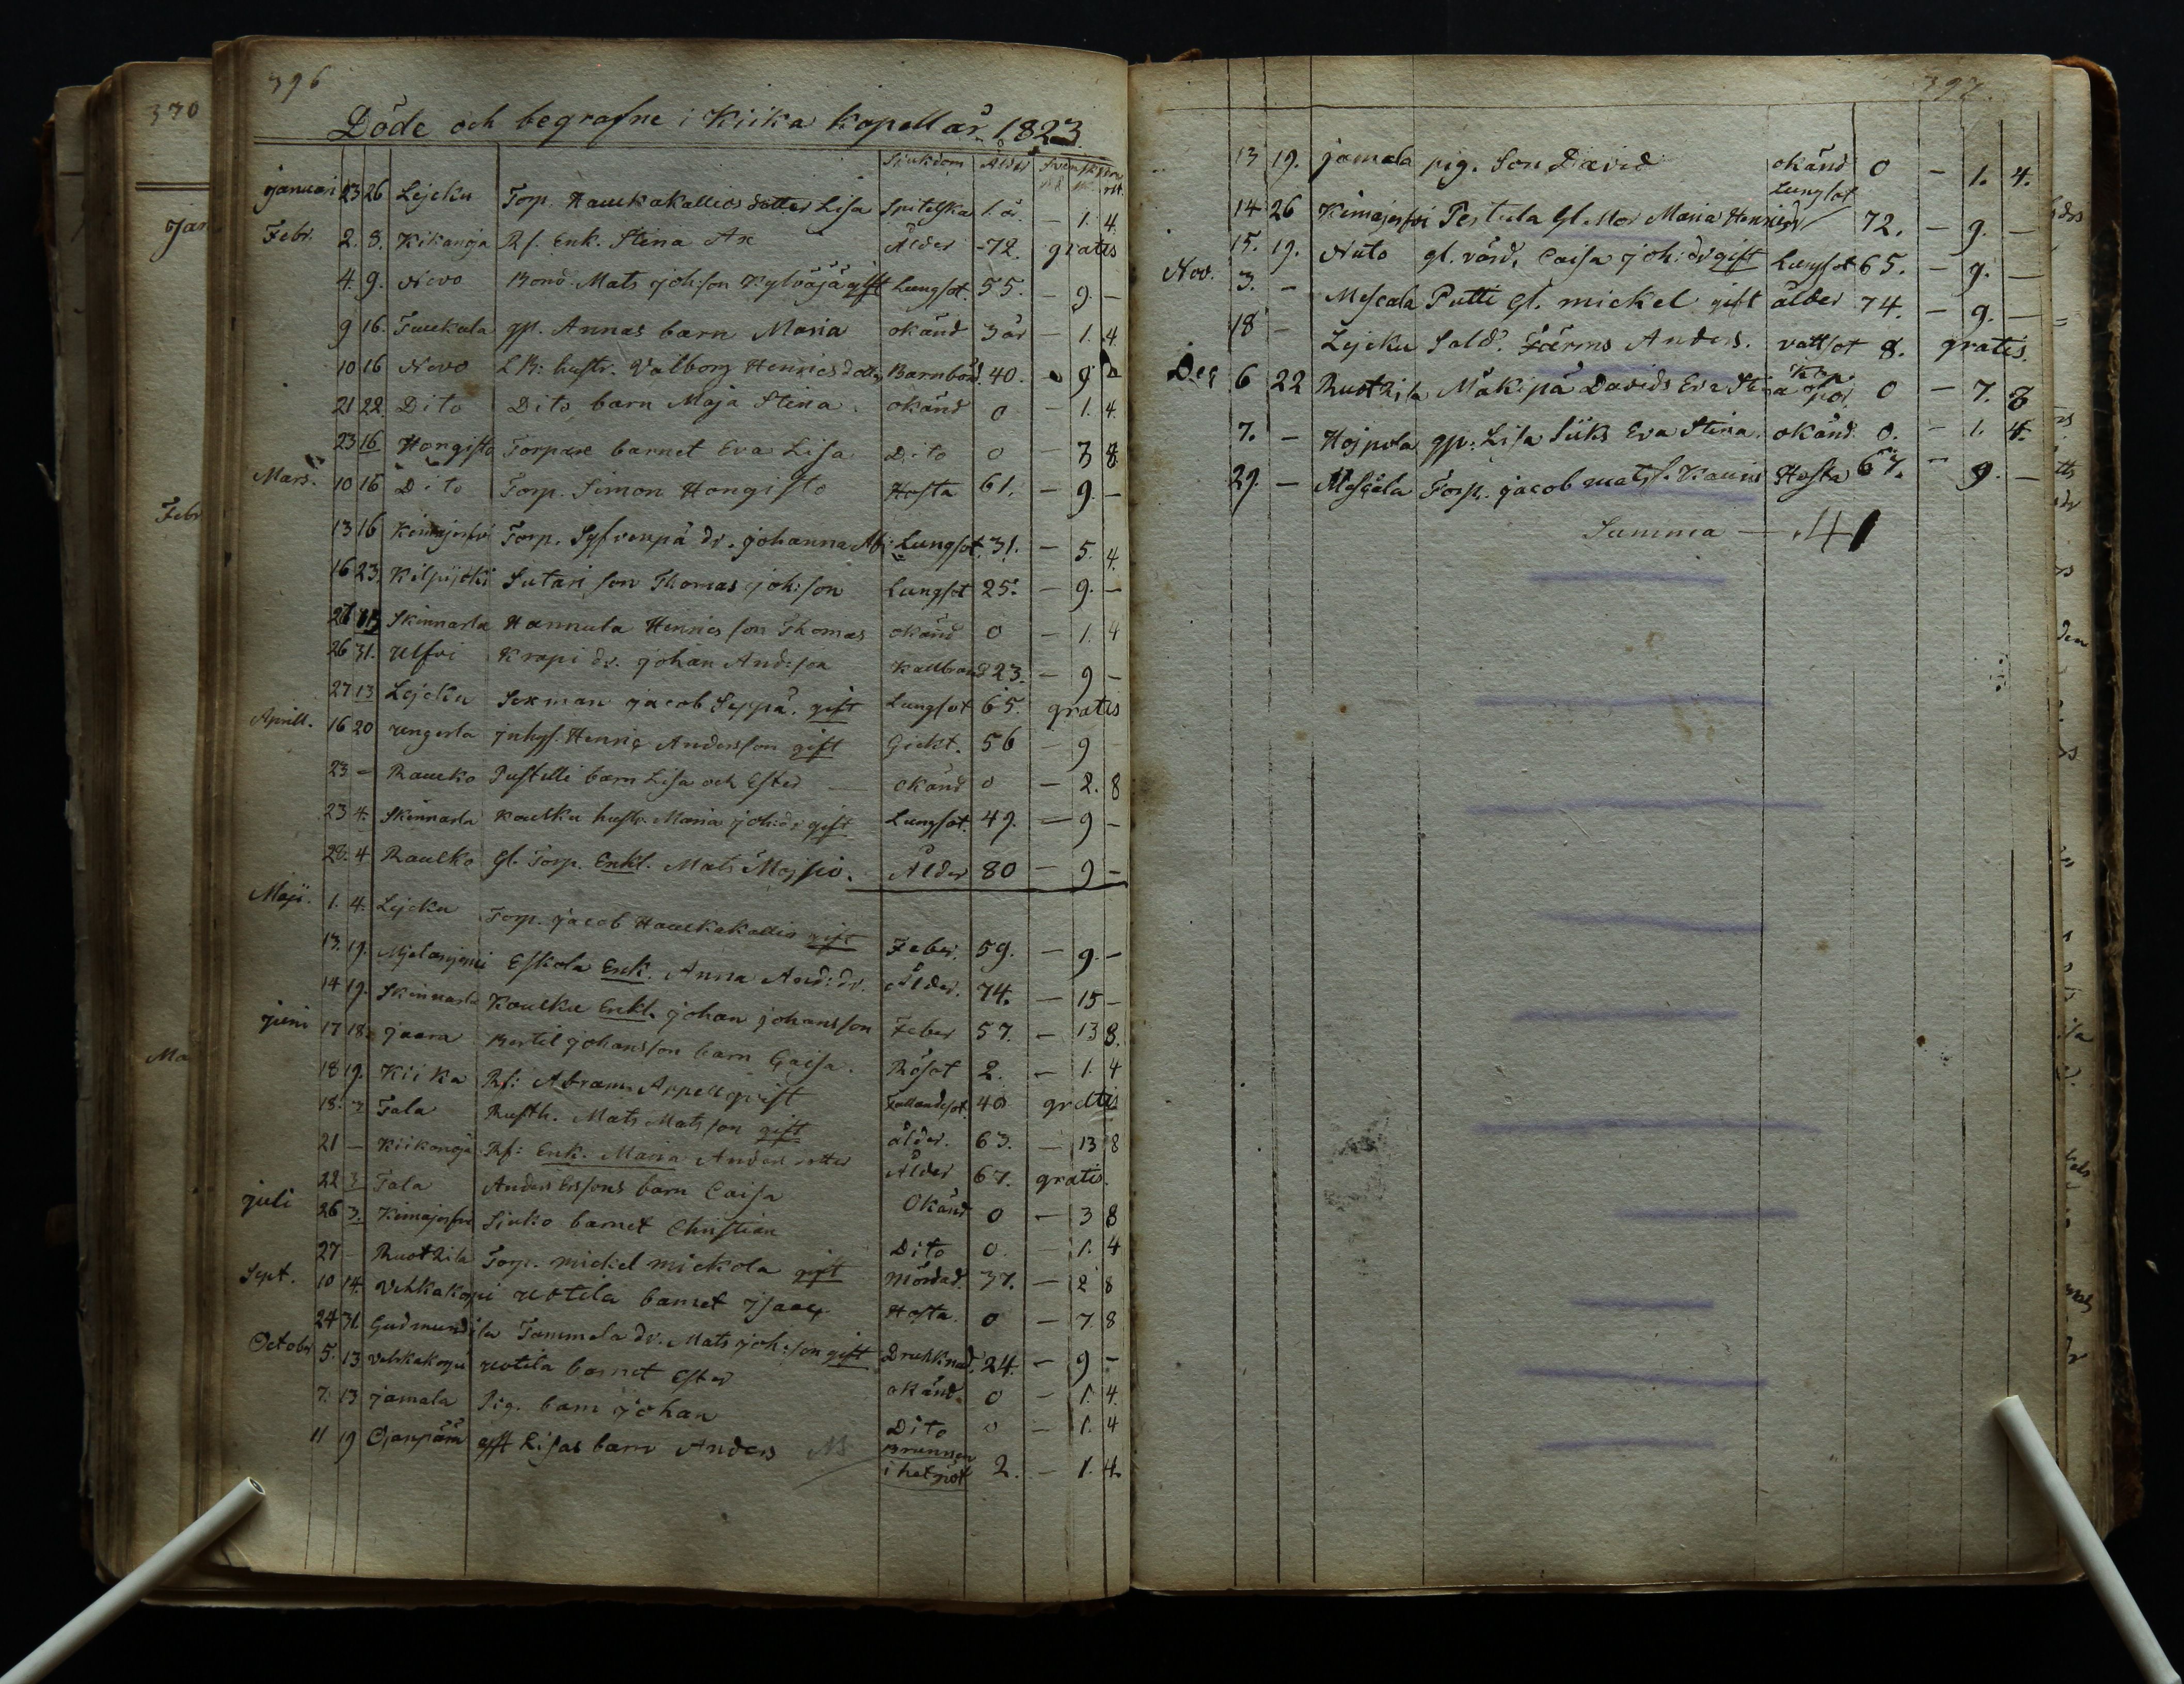 396
Döde och begrafne i Kiika Kapell år 1823.
Sjukdom Ålder
Januari 23 26 Lejcku Torp. Haukakallios dotter Lisa Spitelska 1. år. — 1. 4.
Febr. 2. 8. Kikanoja Rf. Enk. Stina Ax Ålder 72. gratis
4. 9. Nevo Bond. Mats Joh:son Kylväjä gift Lungsot. 55. — 9. —
9 16. Taukala gp. Annas barn Maria okänd 3 år — 1. 4.
10 16 Nevo hustr. Valborg Henricsdotter Barnbörd. 40. 9
21 22. Dito Dito barn Maja Stina. okänd 0 — 1. 4.
23 16 Hongisto Torpare barnet Eva Lisa Dito 0 — 3 8
Mars. 10 16 Dito Torp. Simon Hongisto Hosta 61. — 9. —
13 16 Kimajerfvi Torp. Syfvenpä dr. Johanna Lungsot. 31. — 5. 4.
16 23. Kilpijoki Sutari son Thomas Joh:son Lungsot 25. — 9. —
Skinnarla Hannula Henrics son Thomas okänd 0 — 1. 4
26 31. Ulfvi Krapi dr. Johan And:son Kallbrand 23. — 9 —
27 13 Lejcku Sexman Jacob Seppä. gift Lungsot 65. gratis
Aprill. 16 20 Ungerla Inhys. Henric Andersson gift Gickt. 56 — 9
23 — Rauko Pustelli barn Lisa och Ester — okänd 0 — 2. 8
23 4. Skinnarla Koulku hustr. Maria Joh:dr gift Lungsot. 49. — 9 —
28. 4 Rauko Gl. Torp. Enkl. Mats Mojsio. Ålder 80 — 9 —
Maji. 1. 4. Lejcku Torp. Jacob Haukakallio gift Feber. 59. — 9. —
13. 19. Eskola Enk. Anna And:dr. Ålder. 74. — 15 —
14 19. Skinnarla Koulku Enkl. Johan Johansson Feber 57. — 13 8.
Juni 17 18 Jaara Bertil Johansson barn Caisa. Rösot 2. — 1. 4
18 19. Kiika Rf: Abram Appellqvist Fallandesot. 40 gratis
18. Tala Rusth. Mats Matsson gift ålder. 63. — 13 8
21 — Kiikanoja Rf: Enk. Maria Andersdotter Ålder 67. gratis.
22 3 Tala Anders Erssons barn Caisa Okänd 0 — 3 8
Juli 26 3. Kimajerfvi Sjuko barnet Christian Dito 0. — 1. 4
27 — Ruotzila Torp. mickel mickola gift Mördad. 37. — 2 8
Sept. 10 14. Vehkakorpi Uotila barnet Isaac Hosta. 0 — 7. 8
24 31. Gudmundila Tammela dr. Mats Joh:son gift Drukknad. 24. — 9 —
October 5. 13 Vehkakorpi Uotila barnet Ester okänd. 0 — 1. 4.
7. 13 Jamala Pig. barn Johan Dito 0 — 1. 4
11 19 Ojanpärä gft Lisas barn Anders Brunnen i het 2. — 1. 4.
397.
13 19. Jamala pig. Son David okänd 0 — 1. 4.
14 26 Kimajerfvi Pertula Gl. Mor Maria Henricsdr Lungsot 72. — 9. —
15. 19. Nuto gl. värd. Caisa Joh:dr gift Lungsot 65. — 9. —
Nov. 3. — Mescala Putti Gl. mickel gift ålder 74. — 9. —
18 — Lejcku Sold. Färms Anders. vattsot 8. gratis.
Dec 6 22 Ruotzila Mäkipä Davids Eva Stina Kop por 0 — 7. 8
7. — Hojpola gp. Lisa Siiks Eva Stina. okänd 0. — 1. 4.
29. — Mescala Torp. Jacob mats s. Kauni Hosta 67. — 9. —
Summa — 41
370
Jan
Febr
Ma